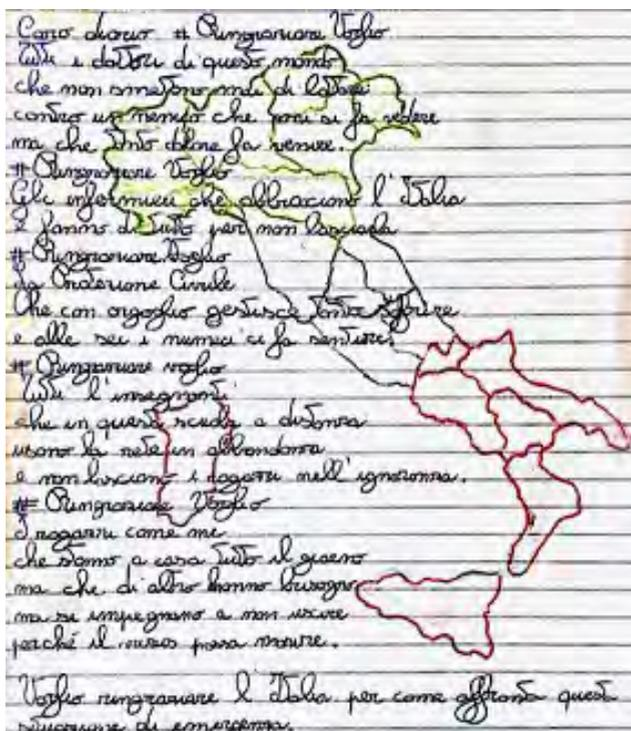 Caro diario # Ringraziare Voglio
Tutti i dottori di questo mondo
che non smettono mai di lottare
contro un nemico che non si fa vedere
ma che tanto dolore fa venire.
# Ringraziare Voglio
Gli infermieri che abbracciano l'Italia
e fanno di tutto per non lasciarla
# Ringraziare Voglio
la Protezione Civile
Che con orgoglio gestisce tanto soffrire
e alle sei i numeri ci fa sentire.
# Ringraziare voglio
Tutti l'insegnanti
che in questa scuola a distanza
usano la rete in abbondanza
e non lasciano i ragazzi nell'ignoranza.
# Ringraziare Voglio
I ragazzi come me
che stanno a casa tutto il giorno
ma che di altro hanno bisogno
ma si impegnano a non uscire
perché il virus possa morire.
Voglio ringraziare l'Italia per come affronta questa
situazione di emergenza.